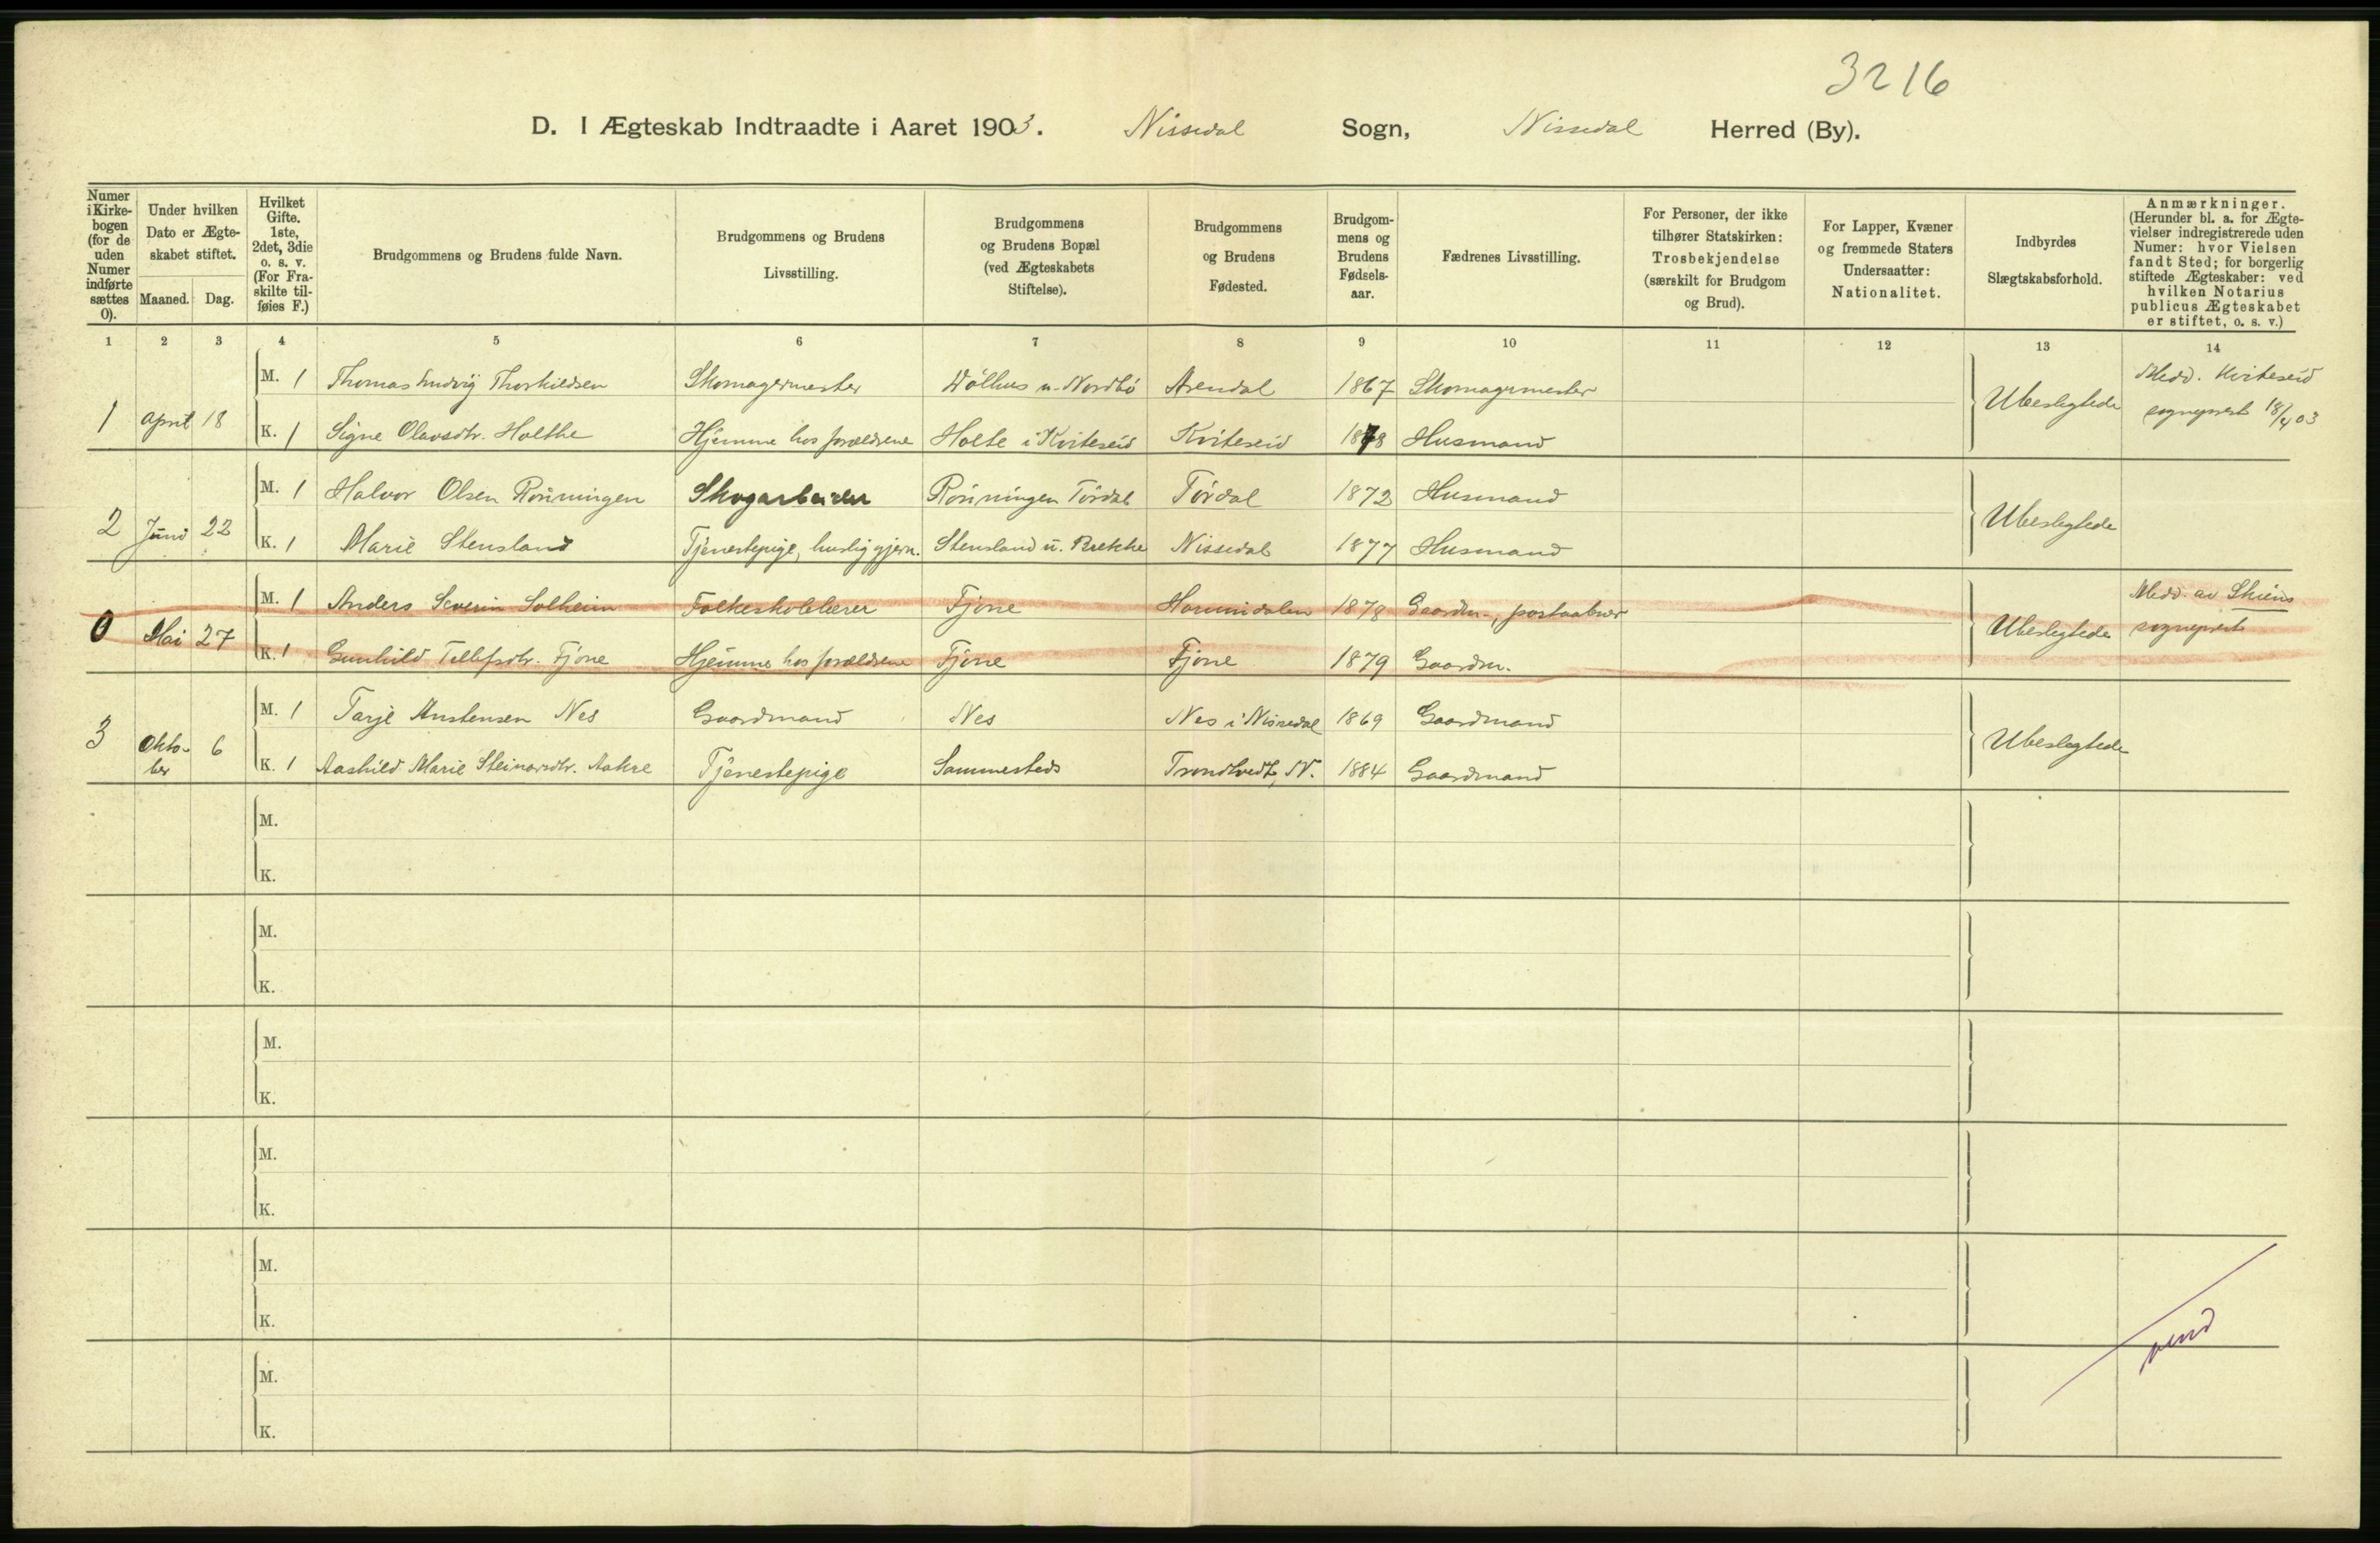 3216
D. I Ægteskab Indtraadte i Aaret 1903. Nissedal Sogn, Nissedal Herred (By).
Numer i Kirke- bogen (for de uden Numer indførte sættes 0).
Under hvilken Dato er Ægte- skabet stiftet.
Maaned. Dag.
Hvilket Gifte. 1ste, 2det, 3die o. s. v. (For Fra- skilte til- føies F.)
Brudgommens og Brudens fulde Navn.
Brudgommens og Brudens Livsstilling.
Brudgommens og Brudens Bopæl (ved Ægteskabets Stiftelse).
Brudgommens og Brudens Fødested.
Brudgom- mens og Brudens Fødsels- aar.
Fædrenes Livsstilling.
For Personer, der ikke tilhører Statskirken: Trosbekjendelse (særskilt for Brudgom og Brud).
For Lapper, Kvæner og fremmede Staters Undersaatter: Nationalitet.
Indbyrdes Slægtskabsforhold.
Anmærkninger. (Herunder bl. a. for Ægte- vielser indregistrerede uden Numer: hvor Vielsen fandt Sted; for borgerlig stiftede Ægteskaber: ved hvilken Notarius publicus Ægteskabet er stiftet, o. s. v.)
1 2 3 4 5 6 7 8 9 10 11 12 13 14
M. 1 Thomas Ludvig Thorkildsen Skomagermester Wølhus u. Nordbö Arendal 1867 Skomagermester Medd. Kviteseid
1 April 18 K. 1 Signe Olavsdtr. Holthe Hjemme hos forældrene Holte i Kviteseid Kviteseid 1878 Husmand Ubeslegtede sogneprest 18/4 03
M. 1 Halvor Olsen Rönningen Skogarbeider Rönningen Tördal Tördal 1872 Husmand
2 Juni 22 K. 1 Marie Stensland Tjenestepige, huslig gjern. Stensland u. Brekke Nissedal 1877 Husmand Ubeslegtede
M. 1 Anders Severin Solheim Folkeskolelærer Fjone Hornindalen 1878 Gaardm., postaabner Medd. av Skiens
0 Mai 27 K. 1 Gunhild Tellefsdtr. Fjone Hjemme hos forældrene Fjone Fjone 1879 Gaardm. Ubeslegtede sogneprest
M. 1 Tarje Anstensen Nes Gaardmand Nes Nes i Nissedal 1869 Gaardmand
3 Okto- ber 6 K. 1 Aashild Marie Steinarsdtr. Aakre Tjenestepige Sammesteds Trondtvedt, N. 1884 Gaardmand Ubeslegtede
M.
K.
M.
K.
M.
K.
M.
K.
M.
K.
M.
K.